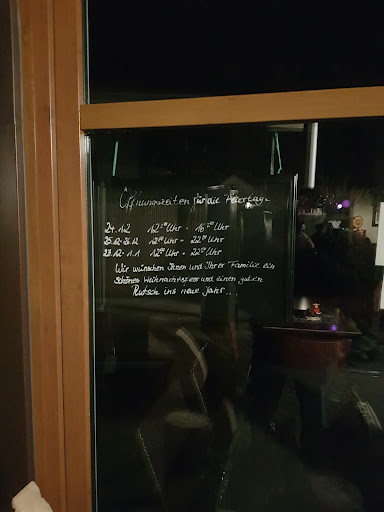 Öffnungszeiten für die Feiertage
24.12 12:00 Uhr - 16:00 Uhr
25.12-26.12 12:00 Uhr - 22:00 Uhr
27.12-1.1 12:00 Uhr - 22:00 Uhr
Wir wünschen Ihnen und Ihrer Familie ein
schönes Weihnachtsfest und einen guten
Rutsch ins neue Jahr...